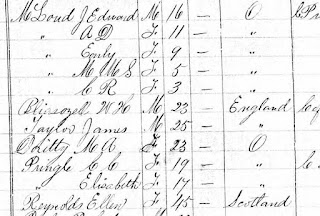 McLoud J Edward M 16 — O
" A D F 11 — "
" Emly F 9 — "
" M M S F 5 — "
" C R F 3 — "
W H M 23 — England
Taylor James M 25 — "
M A F 23 — O
Pringle C C F 19 — "
" Elizabeth F 17 — "
Reynolds Ellen F 45 — Scotland